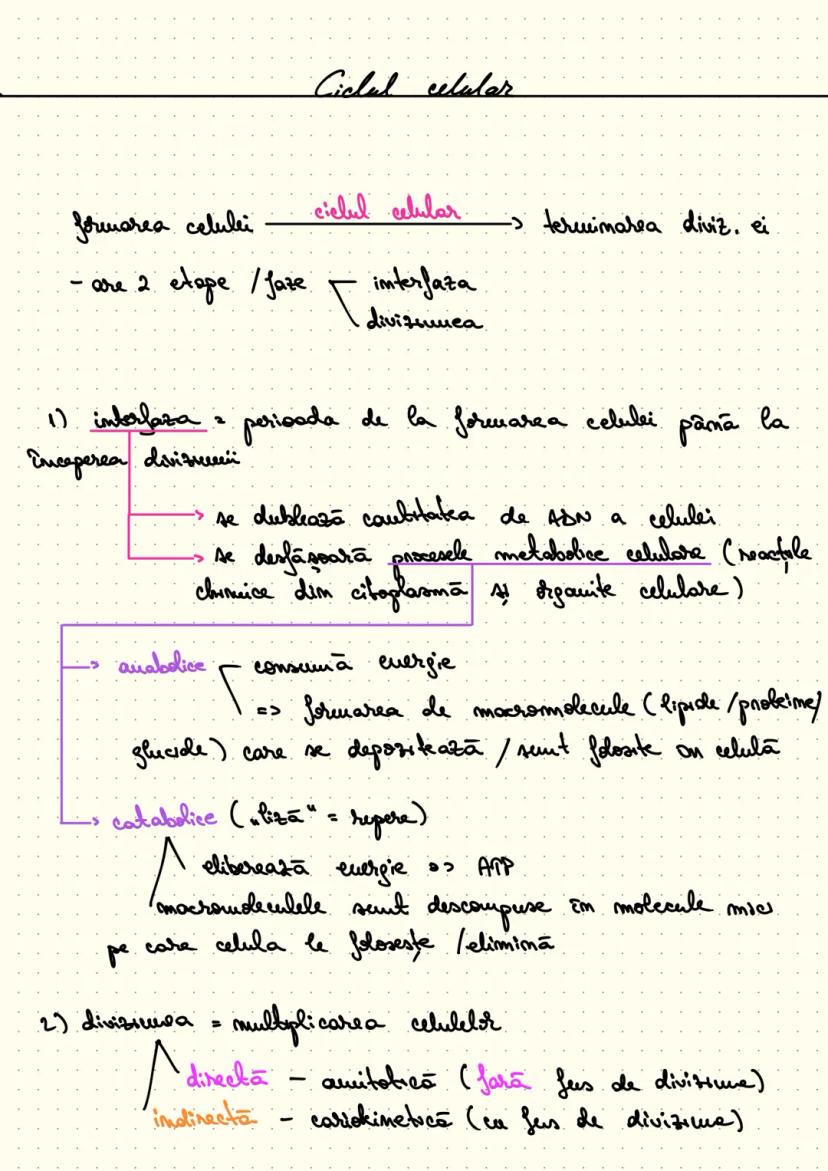 Ciclul celular
formarea celulei ciclul celular → terminarea diviz. ei
- are 2 etape / faze interfaza
diviziunea
1) interfaza = perioada de la formarea celulei până la
începerea diviziunii
→ se dublează cantitatea de ADN a celulei
→ se desfășoară procesele metabolice celulare (reacțiile
chimice din citoplasmă și organite celulare)
→ anabolice consumă energie
=> formarea de macromolecule (lipide / proteine/
glucide) care se depozitează / sunt folosite în celulă
→ catabolice („liză" = rupere)
eliberează energie => ATP
macromoleculele sunt descompuse în molecule mici
pe care celula le folosește / elimină
2) diviziunea = multiplicarea celulelor
directă - amitotică (fară fus de diviziune)
indirectă - cariokinetică (cu fus de diviziune)